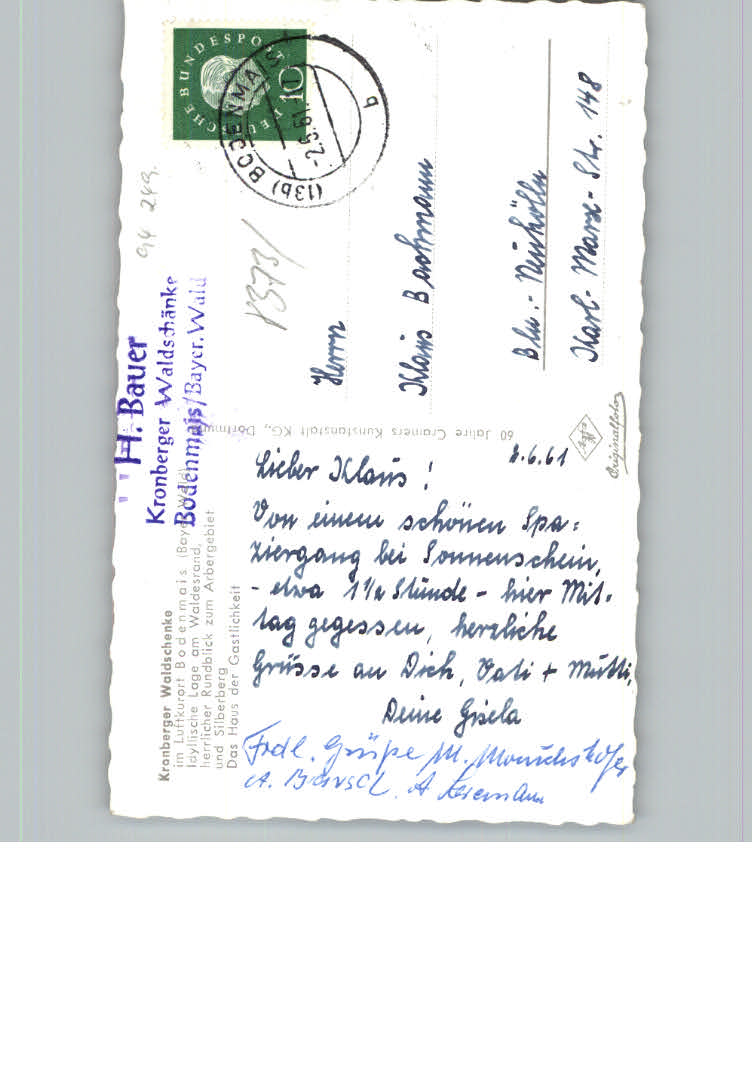 Kronberger Waldschenke
im Luftkurort Bodenmais (Bayer. Wald)
Idyllische Lage am Waldesrand,
herrlicher Rundblick zum Arbergebiet
und Silberberg
Das Haus der Gastlichkeit
H. Bauer
Kronberger Waldschänke
Bodenmais/Bayer. Wald
94 249.
1373/
DEUTSCHE BUNDESPOST
10
(13b) BODENMAIS
-2.6.61
b
60 Jahre Cramers Kunstanstalt KG., Dortmund
2.6.61
Lieber Klaus!
Von einem schönen Spa=
ziergang bei Sonnenschein,
- etwa 1 1/2 Stunde - hier Mit-
tag gegessen, herzliche
Grüsse an Dich, Vati + Mutti,
Deine Gisela
Frdl. Grüße M.
A.
A.
Herrn
Klaus Bachmann
Bln.- Neukölln
Karl- Marx- Str. 148
Agfa
Originalfoto